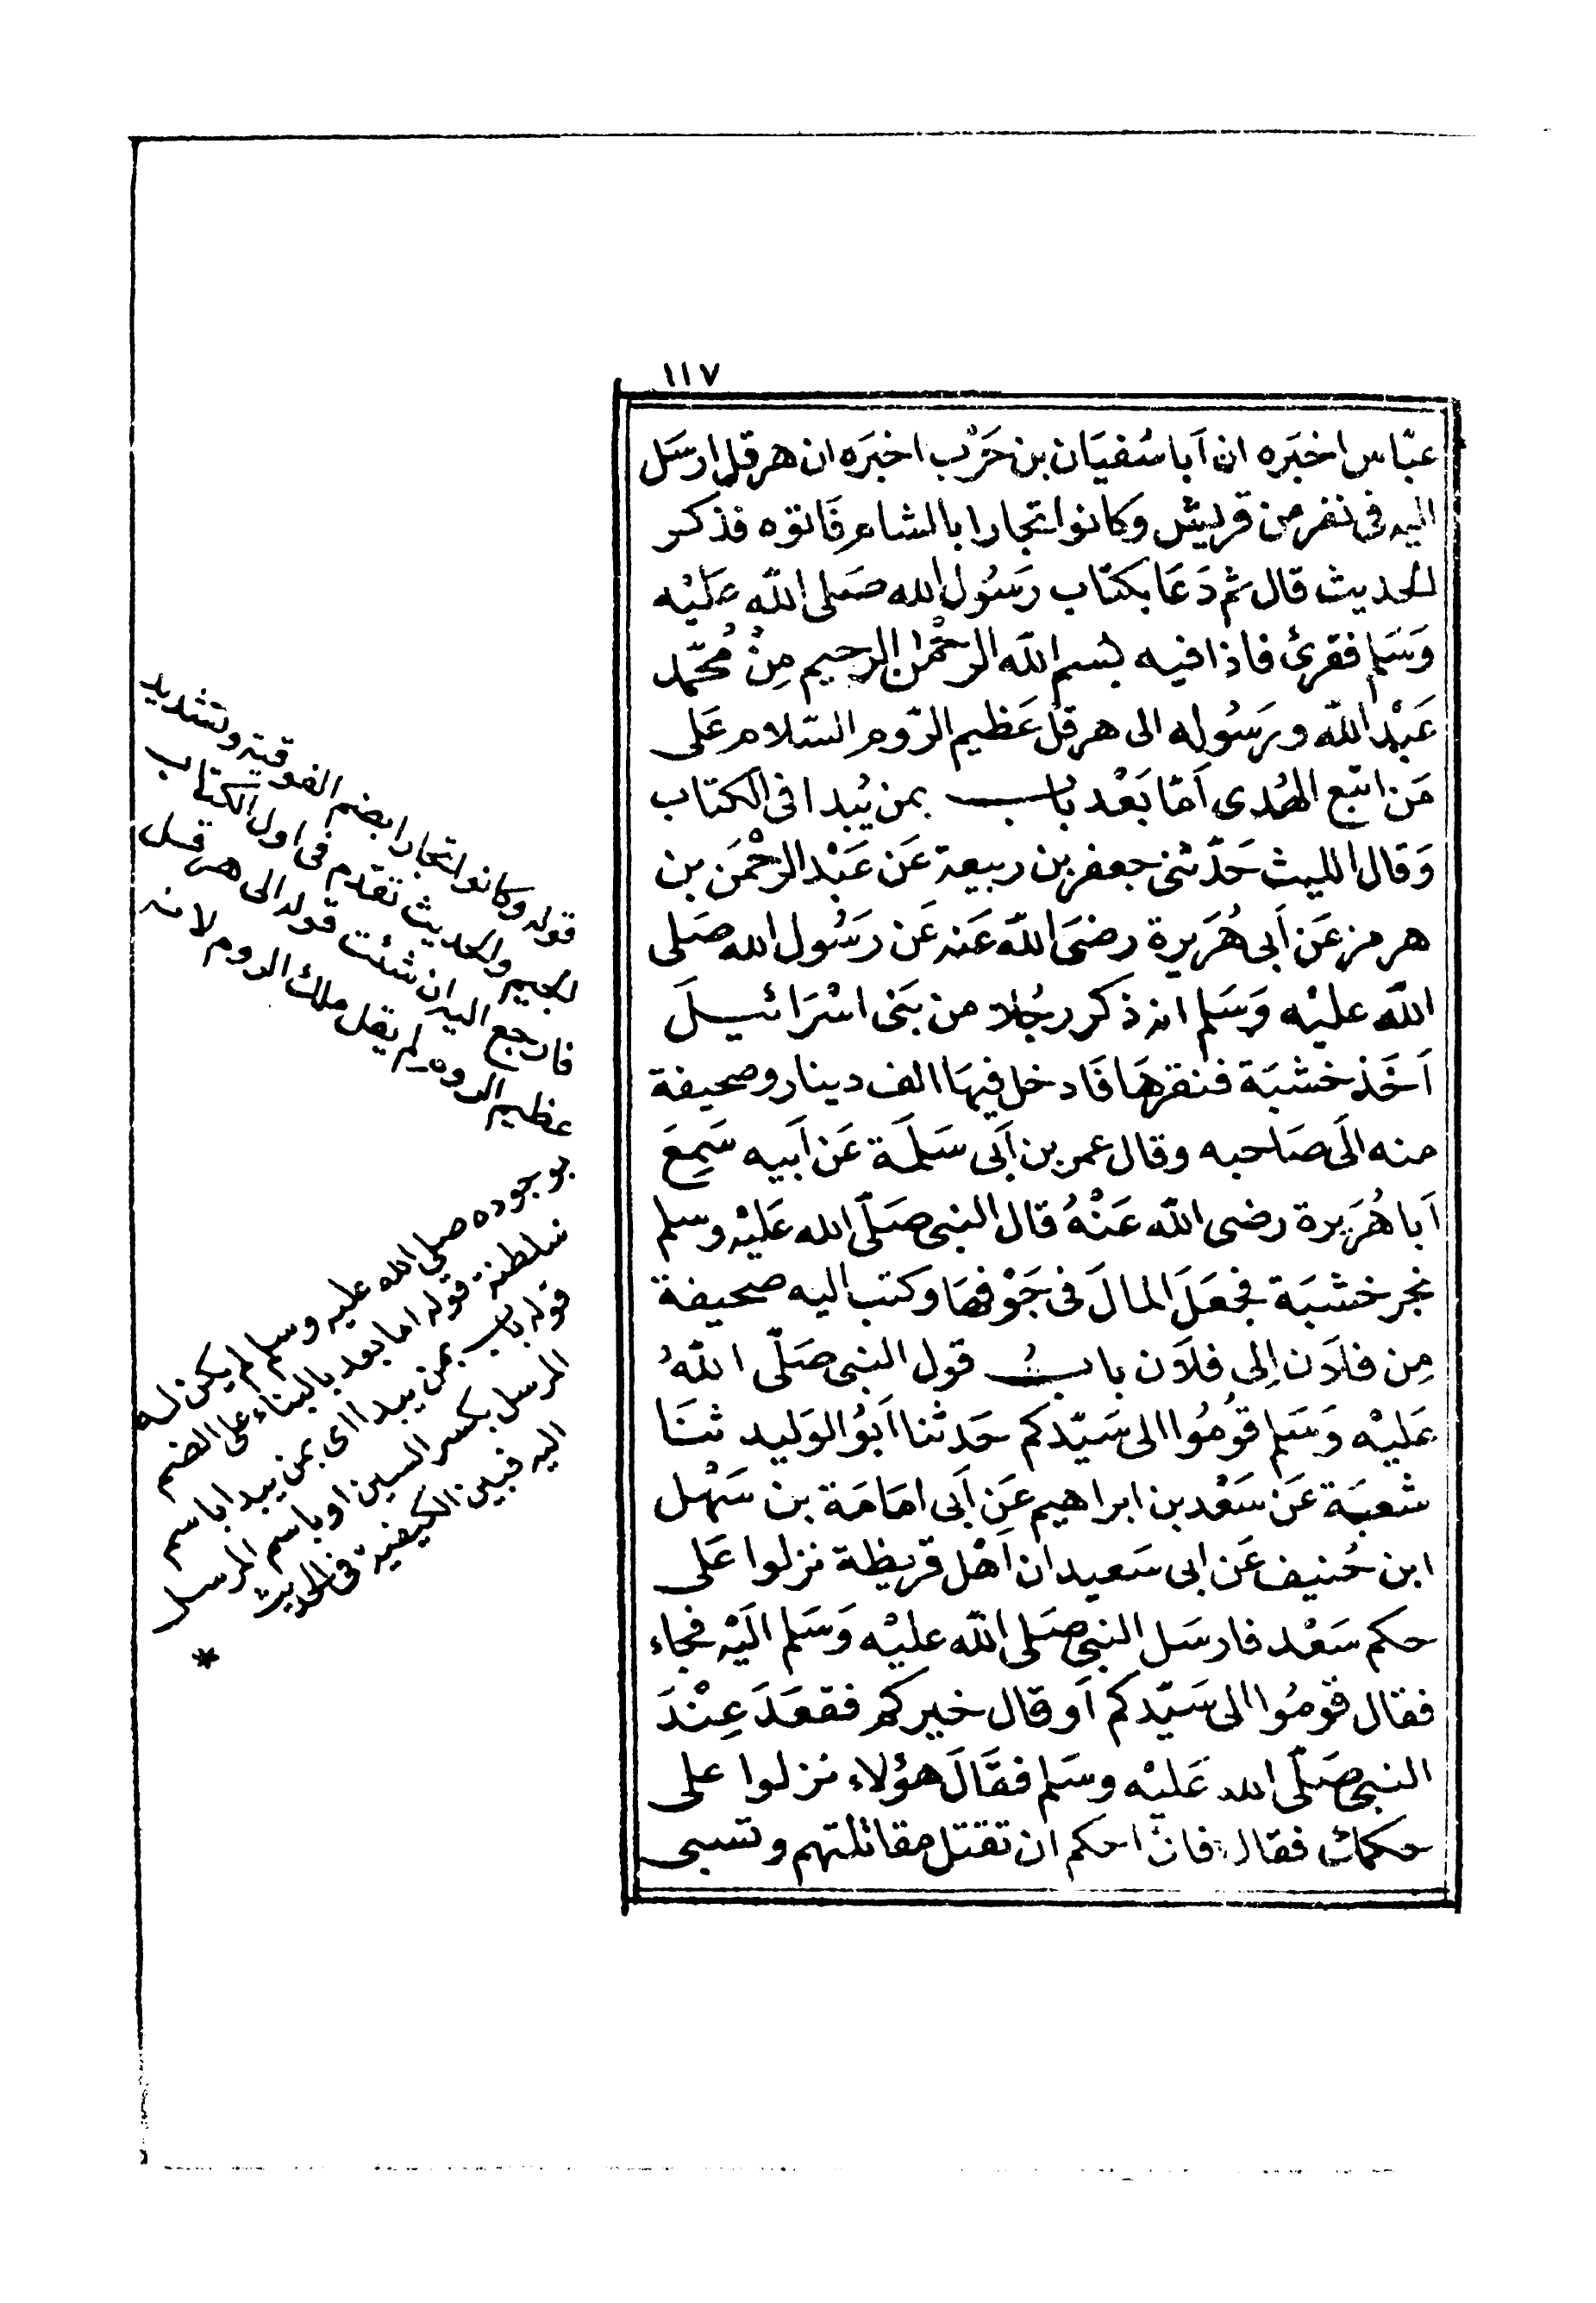 ١١٧
عبّاس اخبَره ان اَبا سُفيَان بن حَرْب اخبَره ان هرقل ارسَل
اليه فى نفر من قريش وكانوا تجارا بالشام فَاتوه فذكر
الحديث قال ثم دَعَا بكتاب رَسُول الله صَلى اللّه عَليْه
وَسَلم فقرئ فاذا فيه بسم اللّه الرحْمٰن الرحيم مِنْ مُحمّد
عَبْد اللّه ورَسُوله الى هرقل عَظيم الرّوم السّلام عَلى
مَن اتبع الهُدى اَمّا بَعْد باب بمن يُبدا فى الكتاب
وَقال الليث حَدّثنى جعفر بن ربيعة عَن عَبْد الرحْمَن بن
هرمز عَن اَبى هُرَيرة رضىَ اللّه عَنه عَن رَسُول الله صَلى
اللّه عليْه وَسَلم انه ذكر رجُلا من بَنى اسْرَائيلَ
اَخَذ خشبَة فنقرهَا فَادخل فيهَا الف دينار وصحيفة
منه الَى صَاحبه وقال عمر بن اَبى سَلمَة عَن اَبيه سَمِعَ
اَبا هُرَيرة رضى اللّه عَنْهُ قال النبى صَلّى الله عَليْه وسلم
نجر خشبَة فجعَلَ المالَ فى جَوْفهَا وكتب اليه صحيفة
مِن فلاَن اِلى فلاَن بابُ قول النبى صَلّى اللّهُ
عَليْه وَسَلم قوُمُوا الى سَيّدكم حَدثنا اَبوُ الوَليد ثنَا
شعبَة عَن سَعْد بن ابراهيم عَن اَبى امَامَة بن سَهْل
ابن حُنيف عَن ابى سَعيد ان اَهْل قريظة نزلوا عَلى
حكم سَعْد فارسَل النبى صَلى اللّه عليْه وَسَلم الَيْه فجاء
فقال قومُوا الى سَيّدكم اَو قال خيركم فقعَدَ عِنْدَ
النبى صَلّى الله عَليْه وسَلم فقَالَ هؤلاء نزلوا على
حكمك فقال فانى احكم ان تقتل مقاتلتهم وتسبى
قوله وكانوا تجارا بضم الفوقية وتشديد
الجيم والحديث تقدم فى اول الكتاب
فارجع اليه ان شئت قوله الى هرقل
عظيم الروم لم يقل ملك الروم لانه
بوجوده صلى الله عليه وسلم لم يكن له
سلطنة قوله اما بعد بالبناء على الضم
قوله باب بمن يبدا اى بمن يبدا باسم
المرسل بكسر السين او باسم المرسل
اليه فبين الكيفية فى الحديث
*